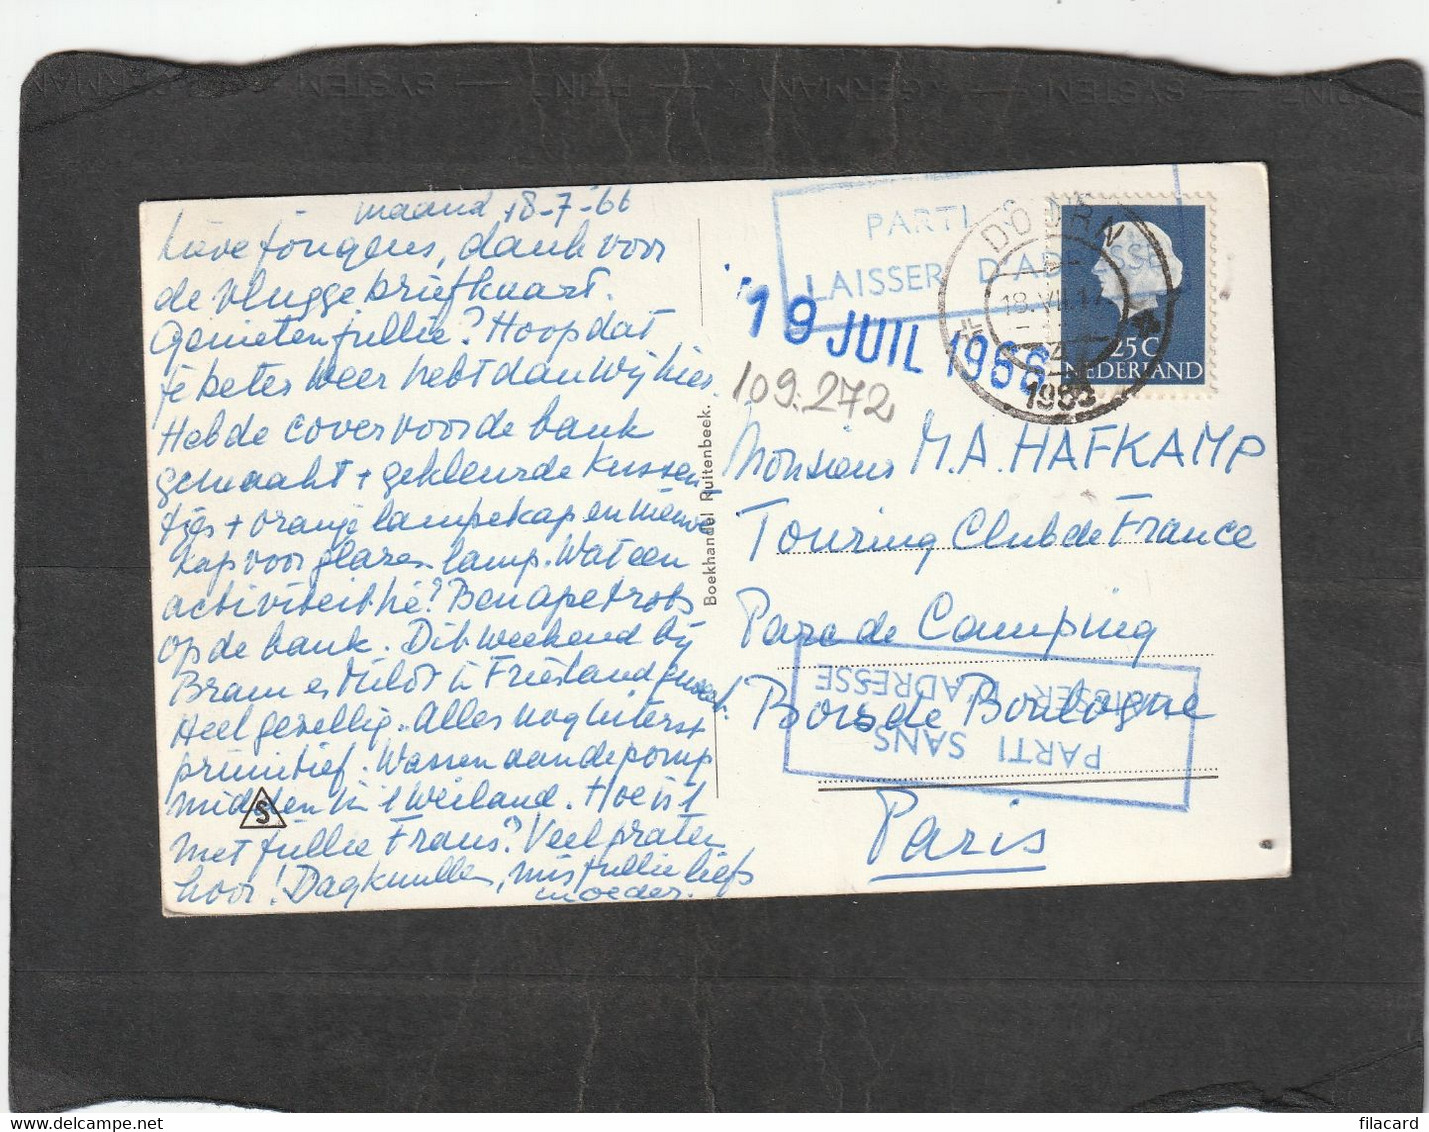 maand 18-7-'66
Lieve jongens, dank voor
de vlugge briefkaart.
Genieten jullie? Hoop dat
je beter weer hebt dan wij hier.
Heb de cover voor de bank
gemaakt + gekleurde kussen
tjes + oranje lampekap en nieuwe
kap voor glazen lamp. Wat een
activiteit hè? Ben apetrots
op de bank. Dit weekend bij
Bram en in Friesland geweest.
Heel gezellig. Alles nog uiterst
primitief. Wassen aan de pomp
midden in 't weiland. Hoe is 't
met jullie Frans? Veel praten
hoor! Dag knullen, mis jullie liefs
moeder.
S
Boekhandel Ruitenbeek.
PARTI S
LAISSER D'ADRESSE
DOORN
18.VII.17
1966
25C
NEDERLAND
19 JUIL 1966
109.272
Monsieur M.A. HAFKAMP
Touring Club de France
Parc de Camping
Bois de Boulogne
Paris
PARTI SANS
LAISSER D'ADRESSE
SYSTEM — PRINT — GERMANY — SYSTEM — PRINT
filacard